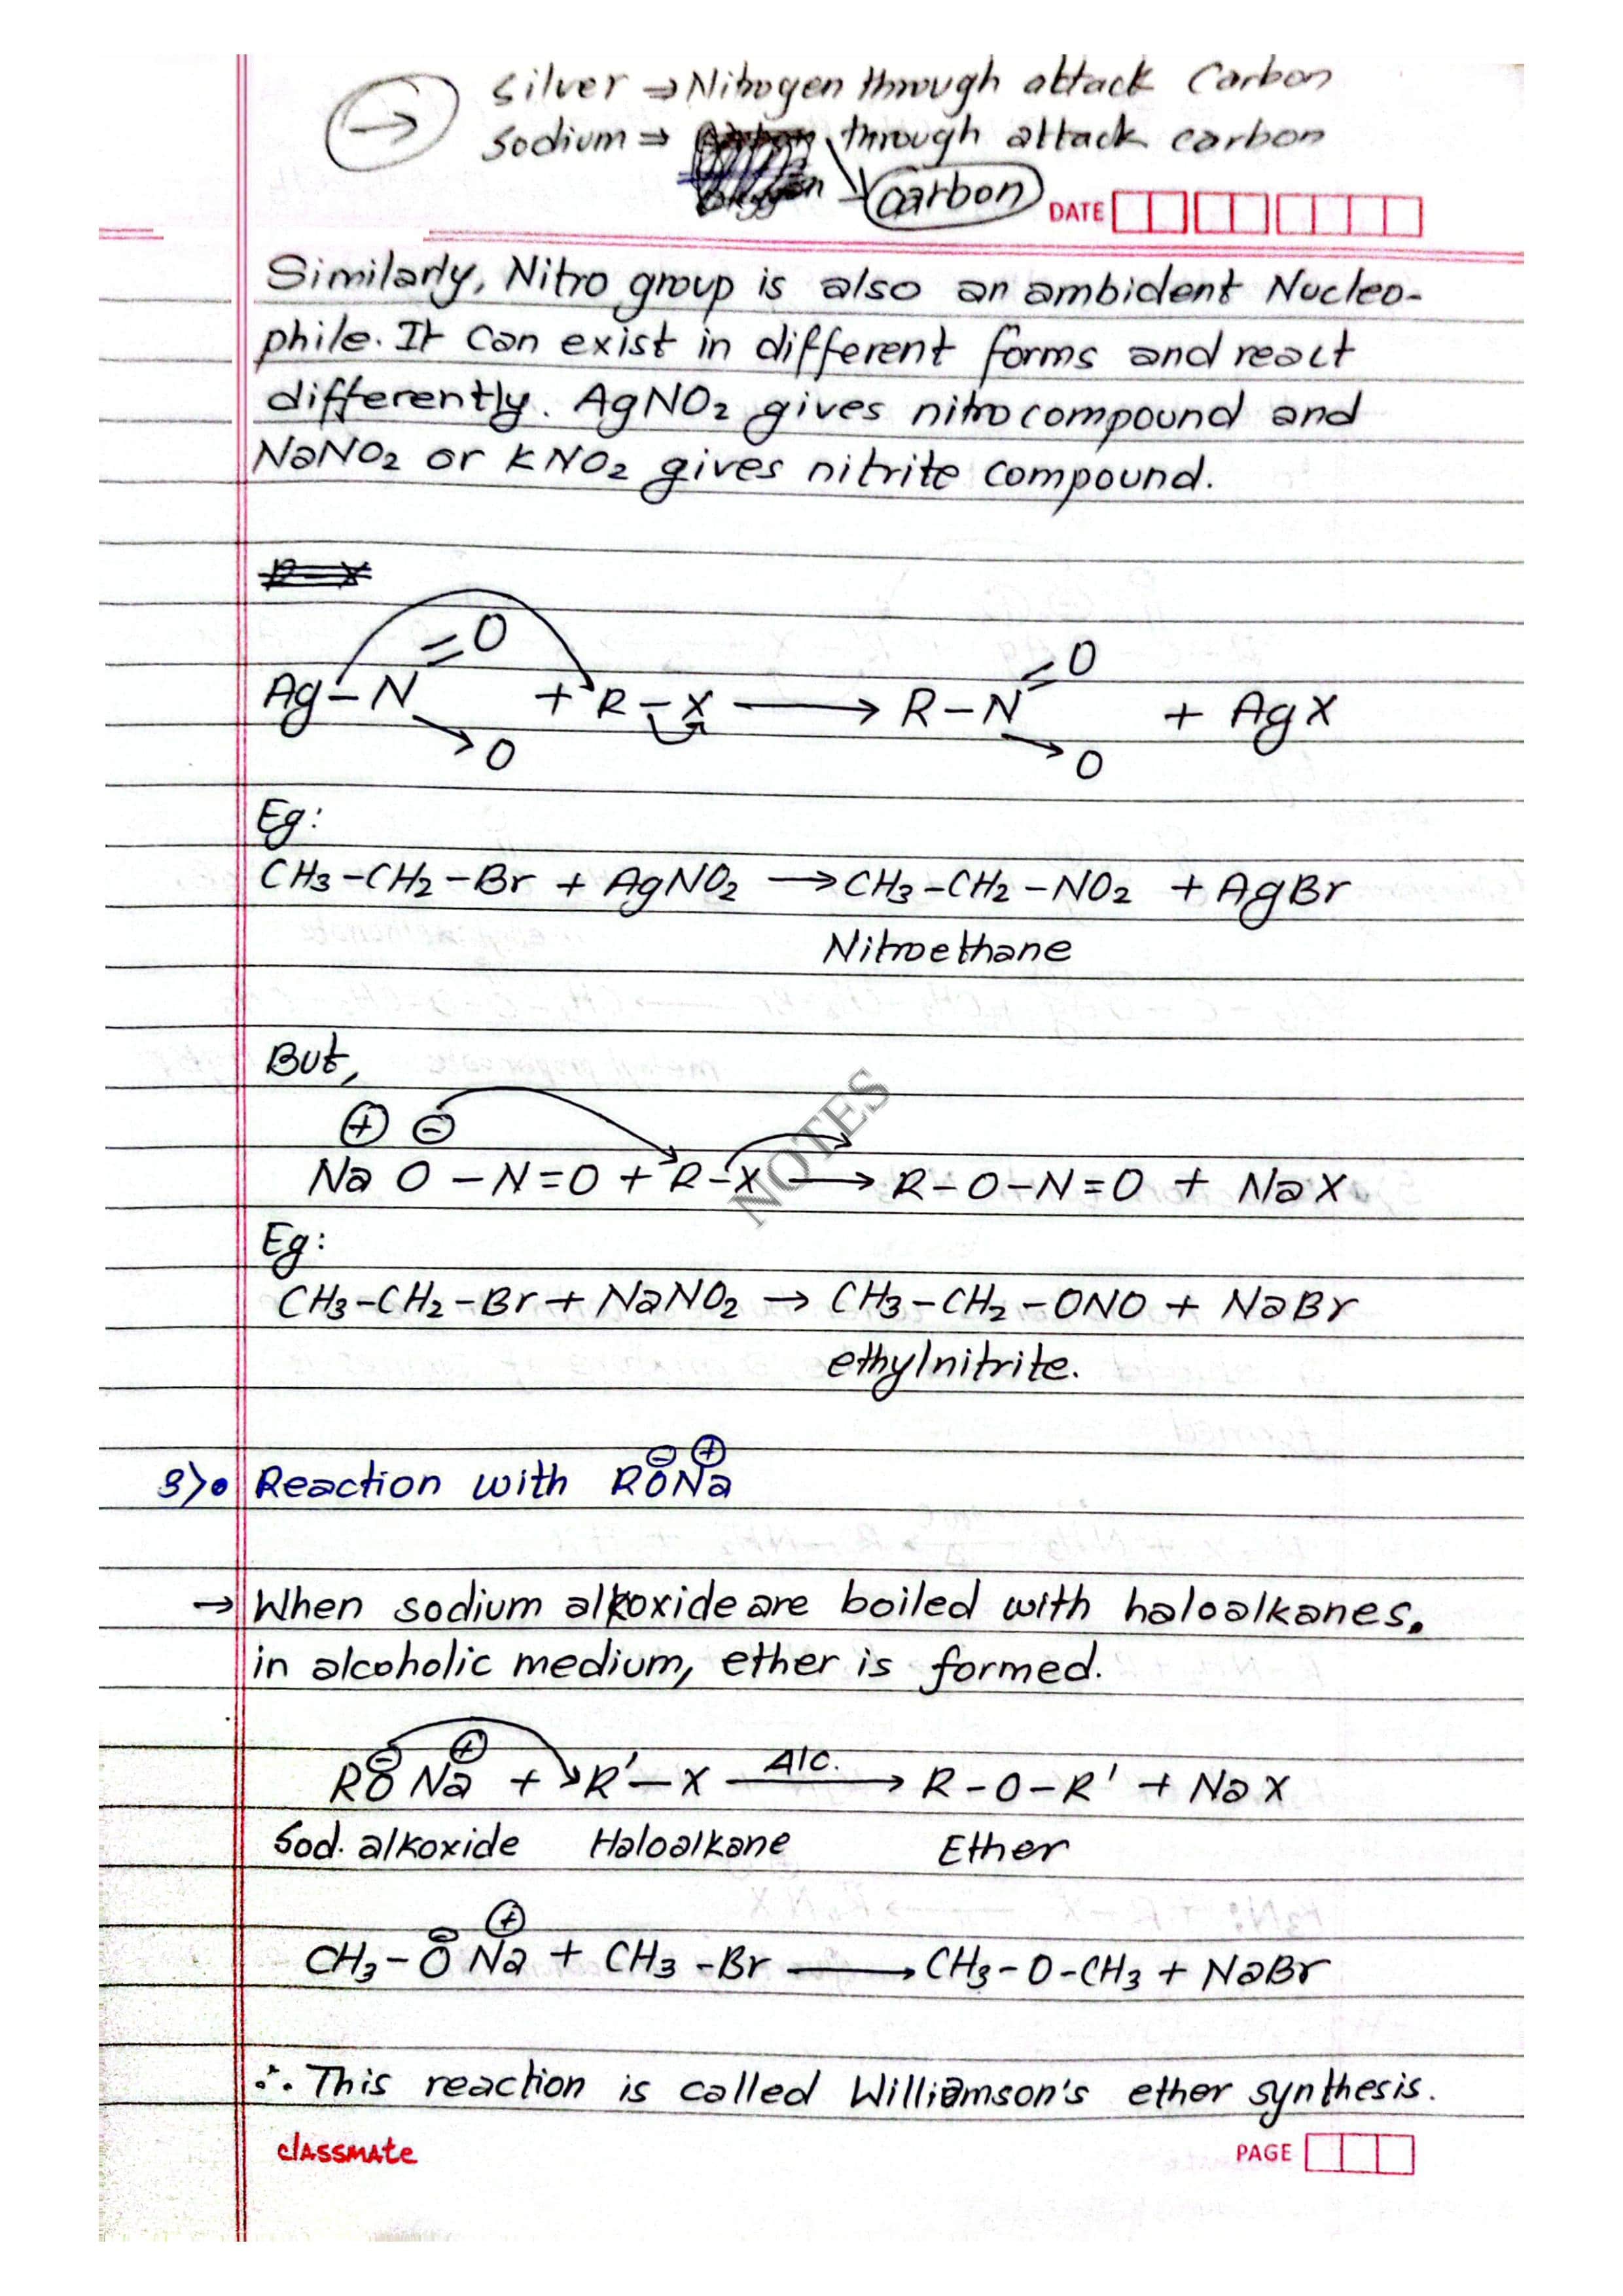 Silver ⇒ Nitrogen through attack Carbon
Sodium ⇒ through attack carbon
carbon
DATE
Similarly, Nitro group is also an ambident Nucleo-
phile. It can exist in different forms and react
differently. AgNO2 gives nitrocompound and
NaNO2 or KNO2 gives nitrite compound.
R-X
Ag-N=O→O + R-X → R-N=O→O + AgX
Eg:
CH3-CH2-Br + AgNO2 → CH3-CH2-NO2 + AgBr
Nitroethane
But,
⊕ ⊖
Na O-N=O + R-X → R-O-N=O + NaX
Eg:
CH3-CH2-Br + NaNO2 → CH3-CH2-ONO + NaBr
ethylnitrite.
3) • Reaction with RO⊖Na⊕
→ When sodium alkoxide are boiled with haloalkanes.
in alcoholic medium, ether is formed.
RO⊖ Na⊕ + R'-X Alc. → R-O-R' + NaX
Sod. alkoxide Haloalkane Ether
CH3-O⊖ Na⊕ + CH3-Br → CH3-O-CH3 + NaBr
∴ This reaction is called Williamson's ether synthesis.
classmate PAGE
NOTES